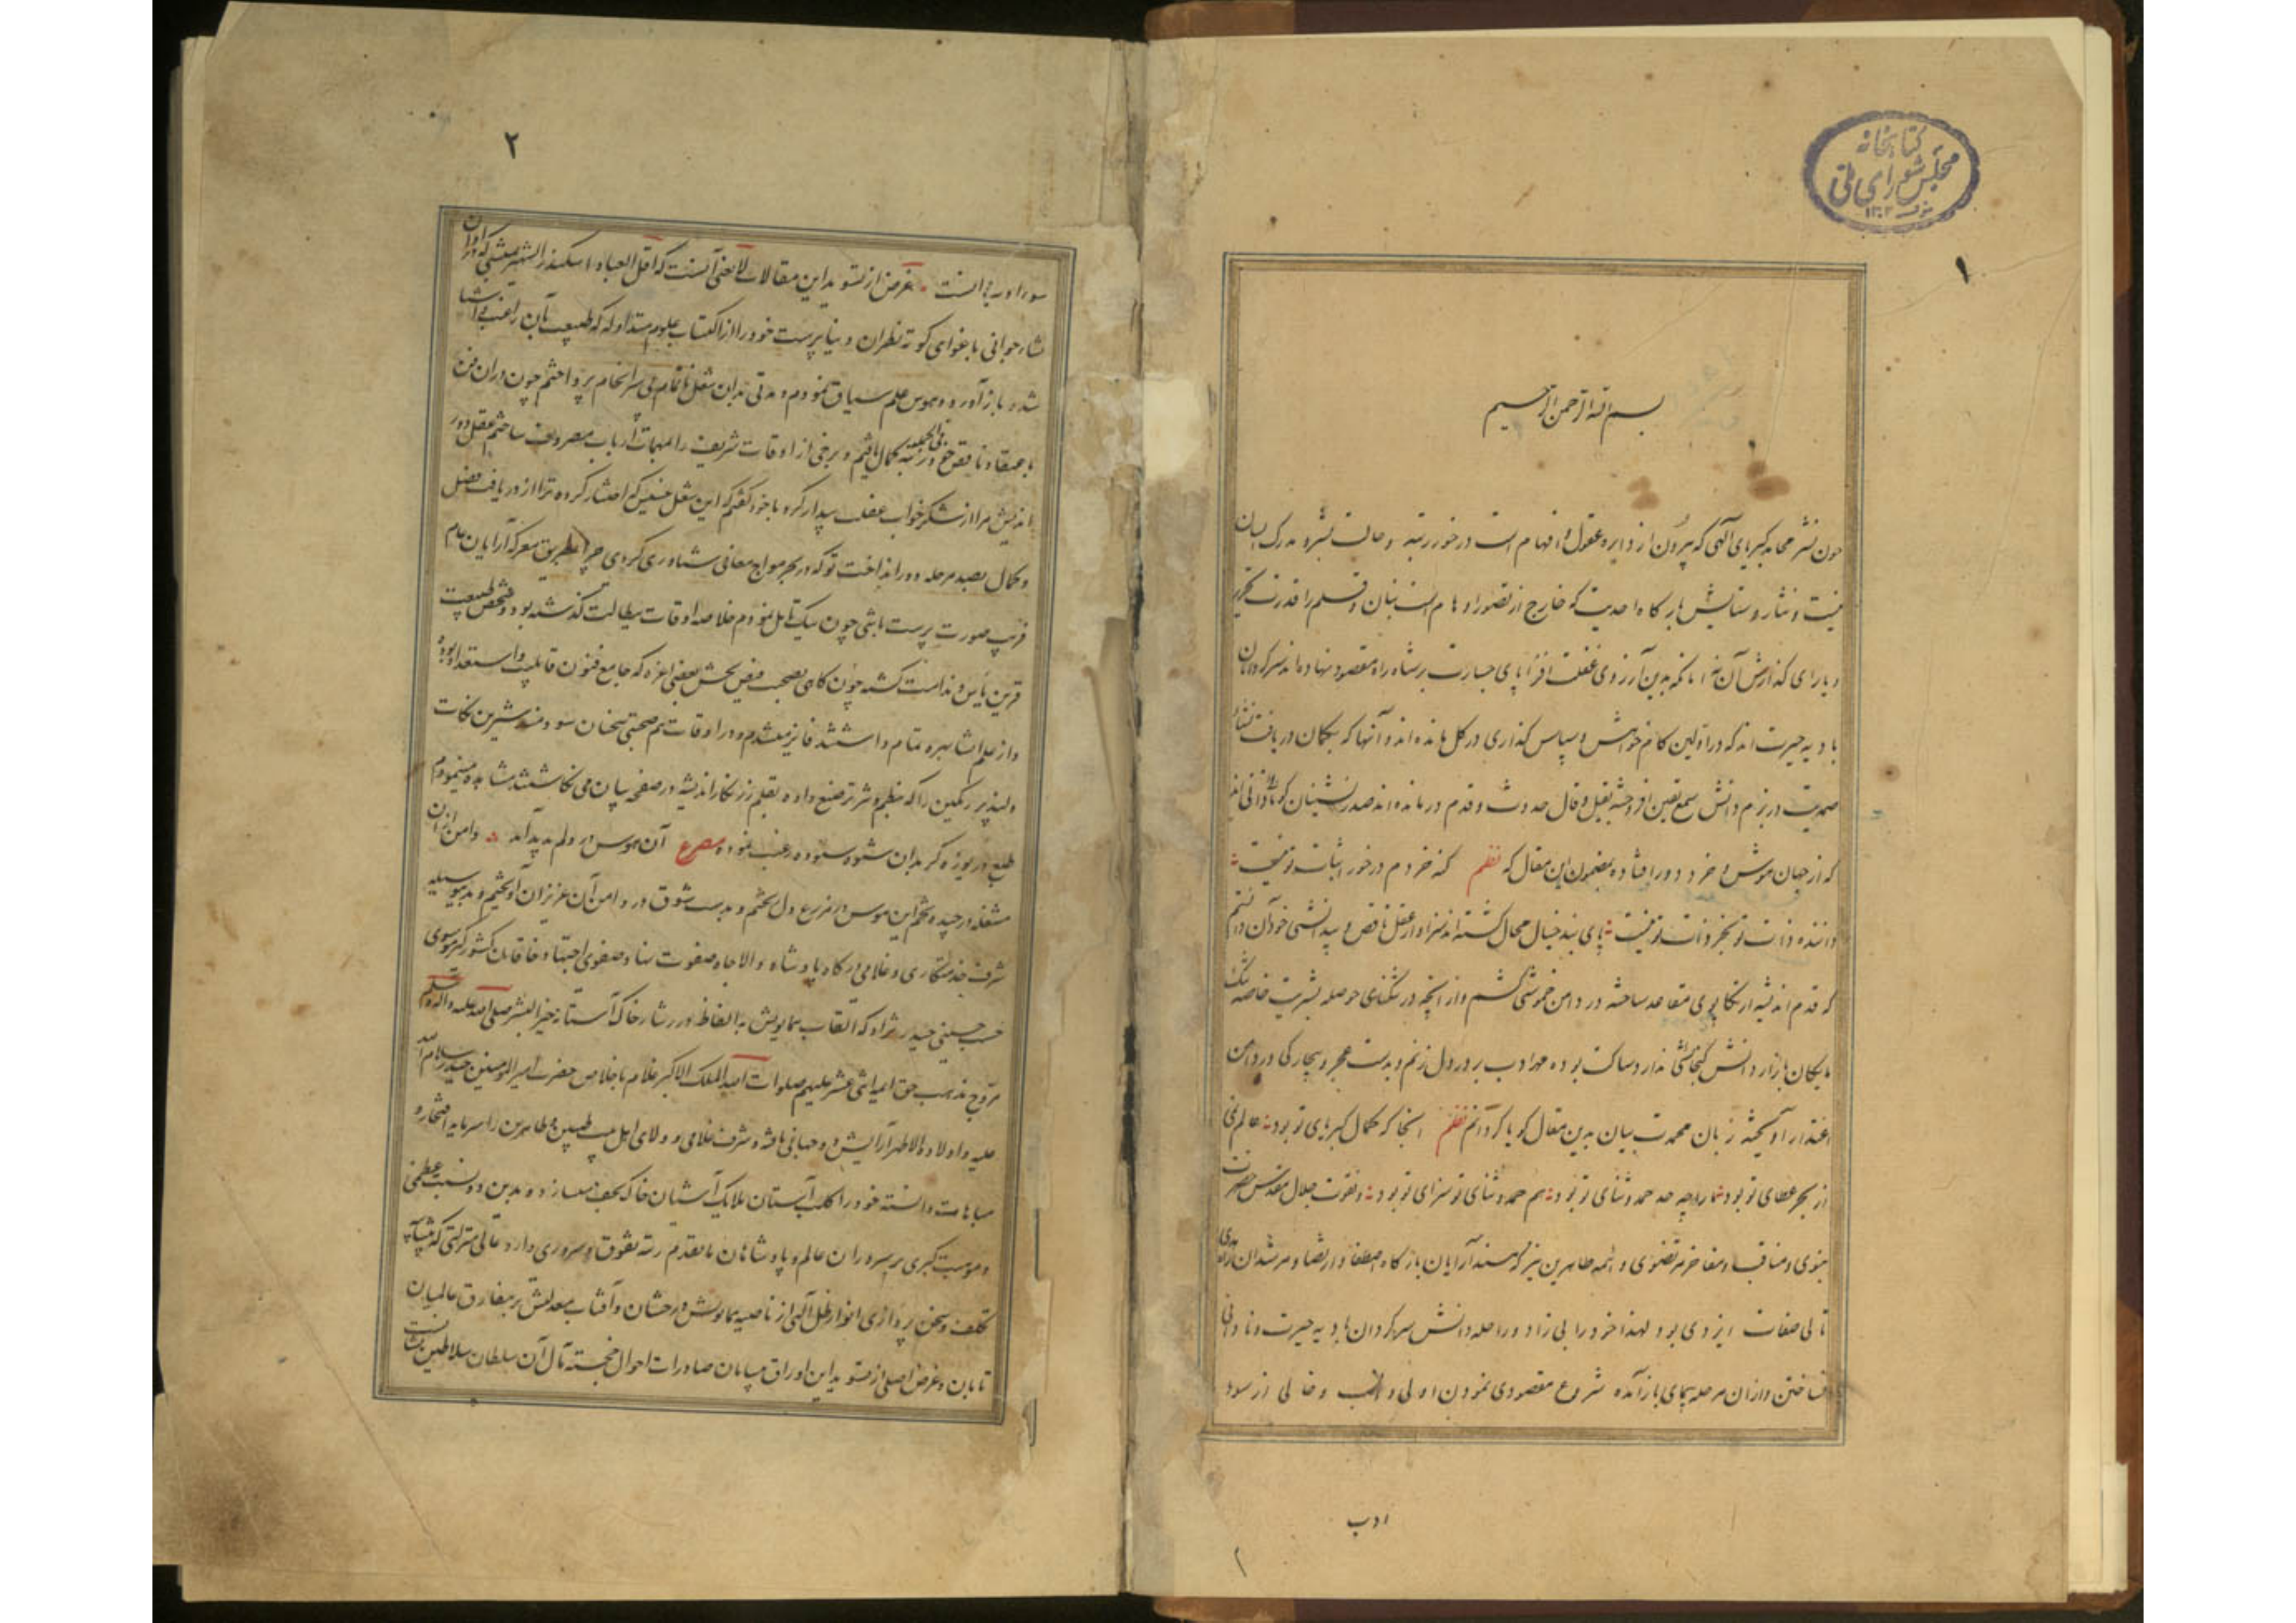 کتابخانه
مجلس شورای ملی
۱
بسم الله الرحمن الرحیم
چون نشر محامد کبریای الهی که بیرون از دایره عقول و افهام است درخور رتبه و حالت بشر و مدرک لسان
نیست و نثار و ستایش بارگاه احدیت که خارج از تصور اوهام است بنان و قلم را قدرت تحریر
و یارای گذارش آن نه آنانکه بدین آرزوی غفلت افزا پای جسارت بر شاه راه مقصود نهاده‌اند سرگردان
بادیه حیرت‌اند که در اولین گام خواهش و سپاس گذاری در گل مانده‌اند و آنها که بگمان دریافت نشاء
صمدیت در بزم دانش شمع یقین افروخته بقیل و قال حدوث و قدم درمانده‌اند صدرنشینان کوی نادانی‌اند
که از جهان هوش و خرد دور افتاده بمضمون این مقال که نظم کنه خردم درخور اثبات تو نیست
داننده ذات تو بجز ذات تو نیست پای بند خیال محال گشته‌اند سزاوار عقل ناقص و بیدانشی خود آن دانستم
که قدم اندیشه از تکاپوی مقاعد ساخته در دامن خموشی کشم و از آنچه در تنگنای حوصله بشریت خاصه تنک
مایکان بازار دانش گنجائش ندارد ساکت بوده مهر ادب بر در دل زنم و بدست عجز و بیچارگی در دامن
اعتذار آویخته زبان محمدت بیان بدین مقال گویا گردانم نظم آنجا که کمال کبریای تو بود عالم نمی
از بحر عطای تو بود ما را چه حد حمد و ثنای تو بود هم حمد و ثنای تو سزای تو بود و نعوت جلال مقدس حضرت
نبوی و مناقب و مفاخر مرتضوی و ائمه طاهرین نیز که مسند آرایان بارگاه اصطفا و ارتضا و مرشدان راه هدی
تالی صفات ایزدی بود لهذا خود را بی زاد و راحله دانش سرگردان بادیه حیرت و نادانی
ساختن و از آن مرحله پیمای باز آمده شروع مقصودی نمودن اولی و انسب و خالی از سود
ادب
۲
سوء ادب دانست غرض از تسوید این مقالات لایعنی آنست که اقل العباد اسکندر الشهیر بمنشی که در اوان
نشاء جوانی باغوای کوته نظران دنیاپرست خود را از اکتساب علوم متداوله که طبیعت بآن راغب و آشنا
شده باز آورده هوس علم سیاق نمودم و مدتی بدان شغل ناتمام بی سرانجام پرداختم چون در آن فن
باعتقاد ناقص خود فی الجمله رتبه کمال یافتم و برخی از اوقات شریف را بمهمات ارباب مصروف ساختم عقل دور
اندیش مرا از شکر خواب غفلت بیدار کرد با خود گفتم که این شغل خسیس که اختیار کرده ترا از دریافت فضل
و کمال بصد مرحله دور انداخت تو که در بحر مواج معانی شناوری کردی چرا بطریق معرکه آرایان عام
فریب صورت پرست باشی چون نیک تامل نمودم خلاصه اوقات ببطالت گذشته بود و شخص طبیعت
قرین یأس و ندامت گشته چون گاهی بصحبت فیض بخش بعضی اعزه که جامع فنون قابلیت و استعداد بوده
و از علم انشا بهره تمام داشتند فایز میشدم و در اوقات هم صحبتی سخنان سودمند شیرین نکات
دلپذیر رنگین را که بنظم و نثر ترصیع داده بقلم زرنگار اندیشه در صفحه بیان می‌نگاشتند مشاهده مینمودم
طبع دریوزه گر بدان شیوه ستوده رغبت نموده مصرع آن هوس در دلم پدید آمد دامن از آن
مشغله درچیده تخم این هوس در مزرع دل کشتم و بدست شوق در دامن آن عزیزان آویختم و بدین وسیله
شرف خدمتکاری و غلامی درگاه پادشاه والاجاه صفوت نهاد صفوی اجتباه خاقان کشورگیر موسوی
حسب حسینی حیدر نژاد که القاب همایونش به الفاظ درر نثار خاک آستانه خیر البشر صلی الله علیه و آله وسلم
مروج مذهب حق ائمه اثنی عشر علیهم صلوات الله الملک الاکبر غلام باخلاص حضرت امیرالمؤمنین حیدر سلام الله
علیه و اولاده الاطهر آرایش دو جهانی یافته و شرف غلامی و ولای اهل بیت طیبین و طاهرین را سرمایه افتخار و
مباهات دانسته خود را کلب آستان ملایک آشیان خاک نجف میسازد و بدین دو نسبت عظمی
و موهبت کبری بر سروران عالم و پادشاهان ماتقدم رتبه تفوق و سروری دارد عالی منزلتی که بیشائبه
تکلف و سخن پردازی انوار ظل الهی از ناصیه همایونش درخشان و آفتاب معدلتش بر مفارق عالمیان
تابان و غرض اصلی از تسوید این اوراق بیان صادرات احوال خجسته مآل آن سلطان سلاطین نشان است